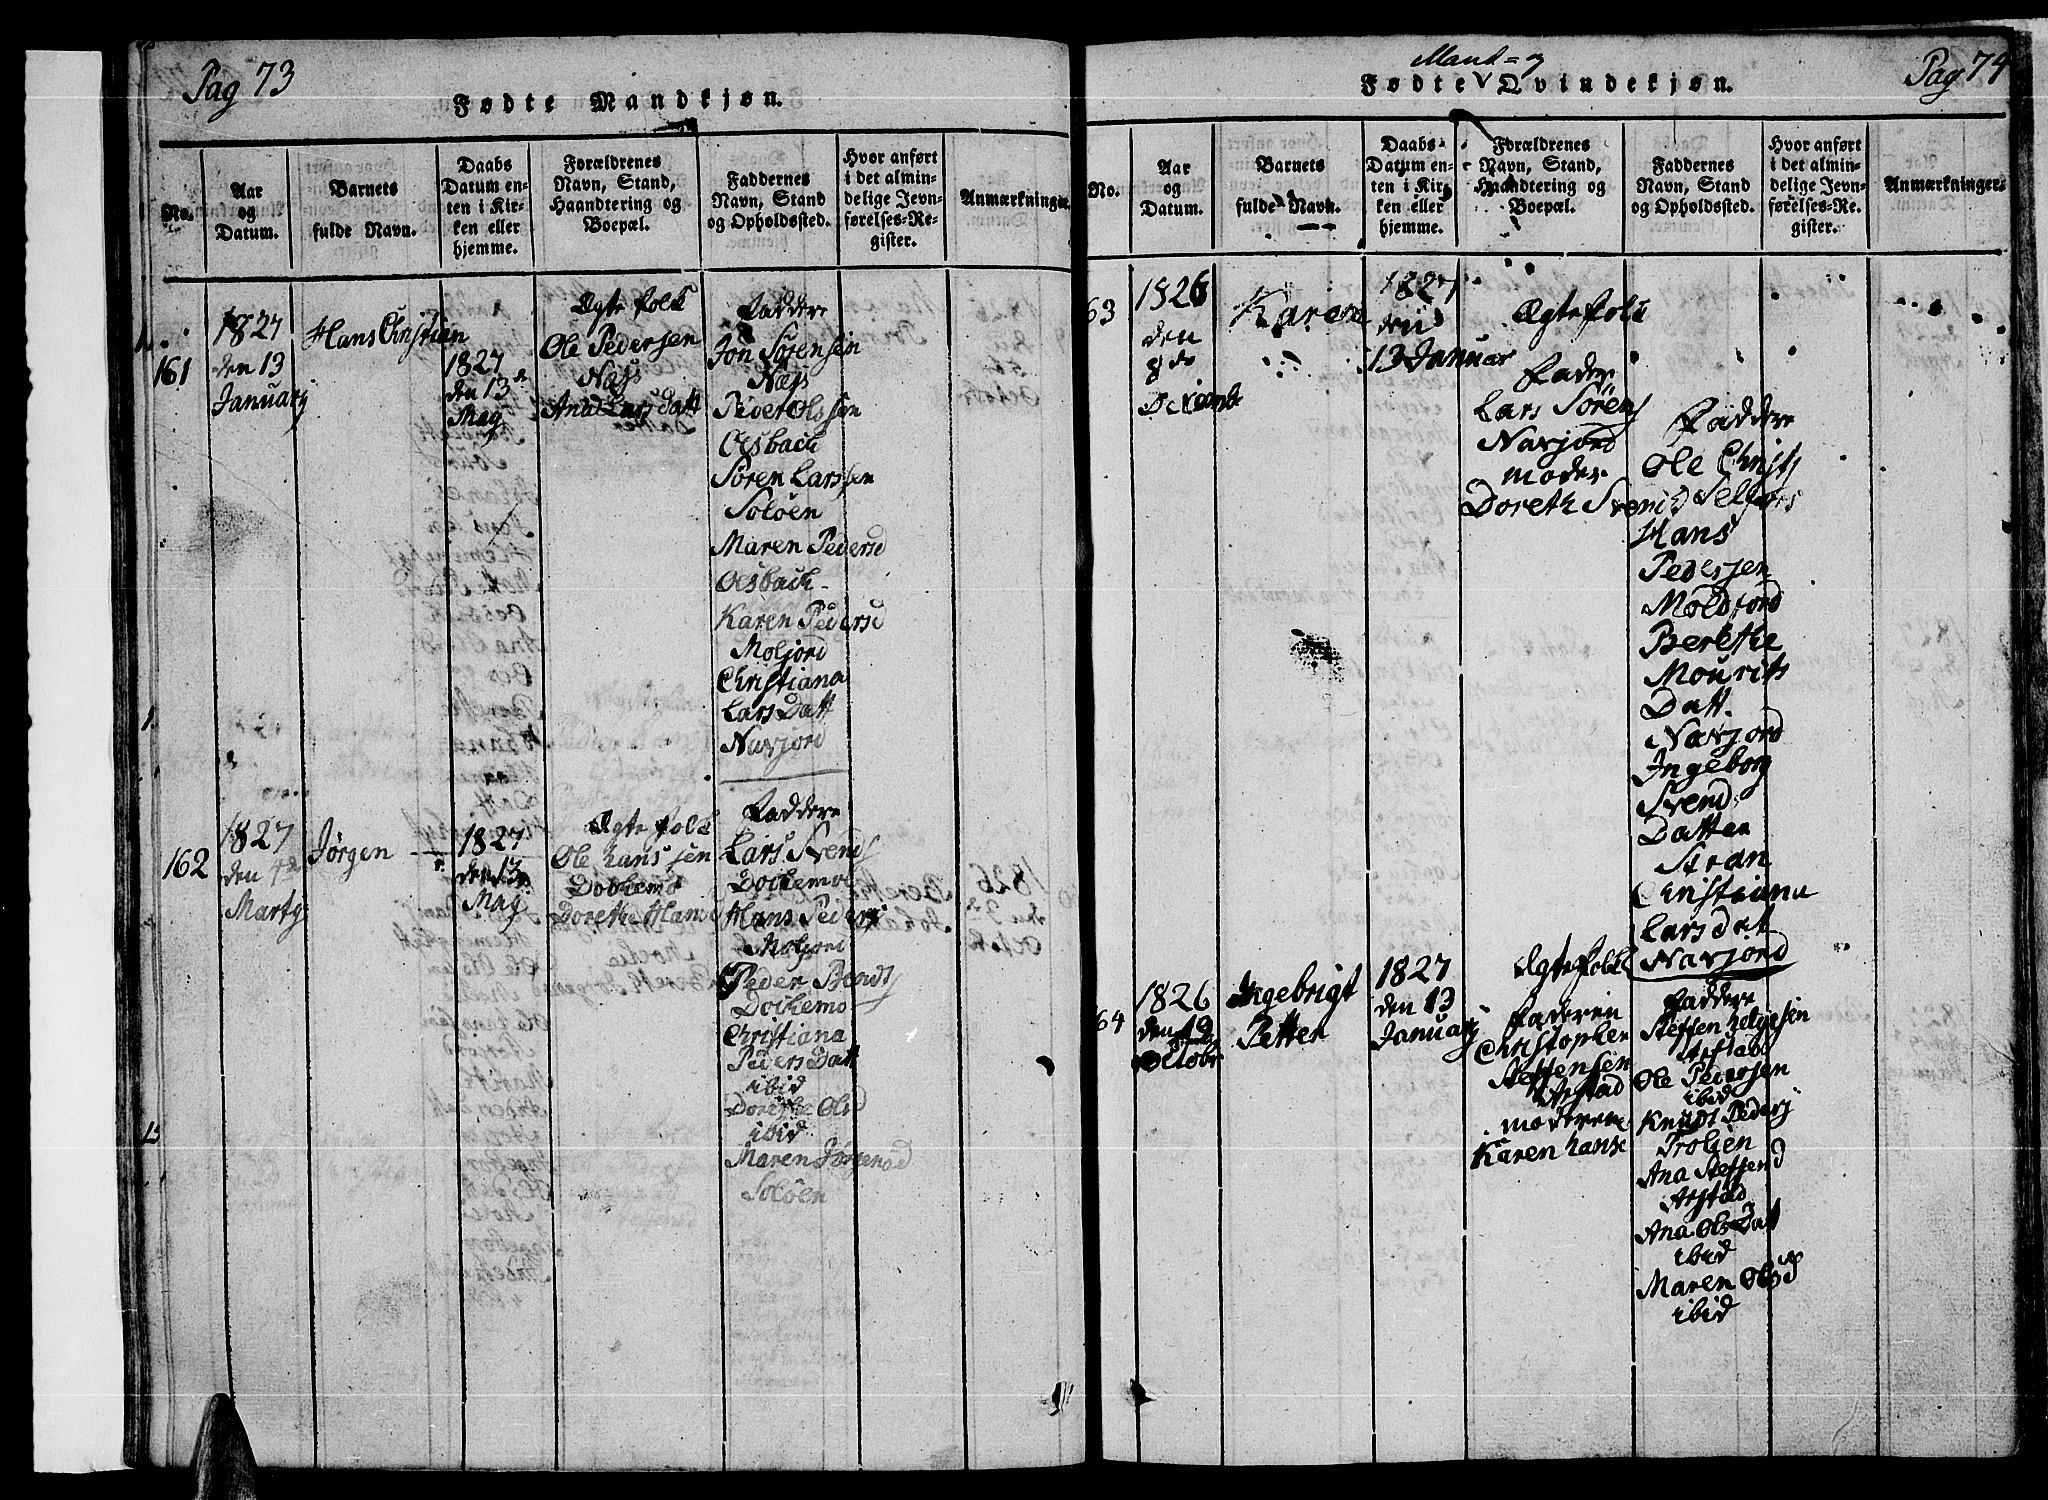 Pag 73
Fødte Mandkjøn.
No.
Aar
og
Datum.
Barnets
fulde Navn.
Daabs
Datum en-
ten i Kir-
ken eller
hjemme.
Forældrenes
Navn, Stand,
Haandtering og
Boepæl.
Faddernes
Navn, Stand
og Opholdssted.
Hvor anført
i det almin-
delige Jevn-
førelses-Re-
gister.
Anmærkninger.
161
1827
den 13
January
Hans Christian
1827
den 13de
May
Ægte folk
Ole Pedersen
Næss
Ana Lars Datt
Faddere
Jon Sørensen
Næss
Peder Olssen
Oesbach
Søren Larssen
Soløen
Maren Pedersd
Oesbach
Karen Pedersd
Moljord
Christiana
Lars Datt
Navjord
162
1827
den
Marty
Jørgen
1827
den 13
May
Ægte folk
Ole hanssen
Dochemo
Dorethe Hansd
Faddere
Lars Svends
Dochemo
Hans Peders
Moljord
Peder Bends
Dochemo
Christiana
Peders Datt
ibid
Dorethe Olsd
ibid
Maren Jørgensd
Soløen
Mand- og
Fødte Qvindekjøn.
Pag 74
No.
Aar
og
Datum.
Barnets
fulde Navn.
Daabs
Datum en-
ten i Kir-
ken eller
hjemme.
Forældrenes
Navn, Stand,
Haandtering og
Boepæl.
Faddernes
Navn, Stand
og Opholdssted.
Hvor anført
i det almin-
delige Jevn-
førelses-Re-
gister.
Anmærkninger.
63
1826
den
8de
Decemb
Karen
1827
den
13 Januar
Ægtefolk
Fader
Lars Sørens
Navjord
moder
Doreth Svensd
Faddere
Ole Christs
Selfors
Hans
Pedersen
Moldjord
Berethe
Mourits
Datt.
Navjord
Ingeborg
Svend
Datter
Stran
Christiana
Lars dat
Navjord
64
1826
den 19
Octobr
Ingebrigt
Petter
1827
den 13
January
Ægtefolk
Faderen
Christopher
Steffensen
Arstad
moderen
Karen hansd
Faddere
Steffen helgesen
Arstad
Ole Pedersen
ibid
Knudt Peders
Troljen
Ana Steffensd
Arstad
Ana Ols Datt
ibid
Maren Olsd
ibid